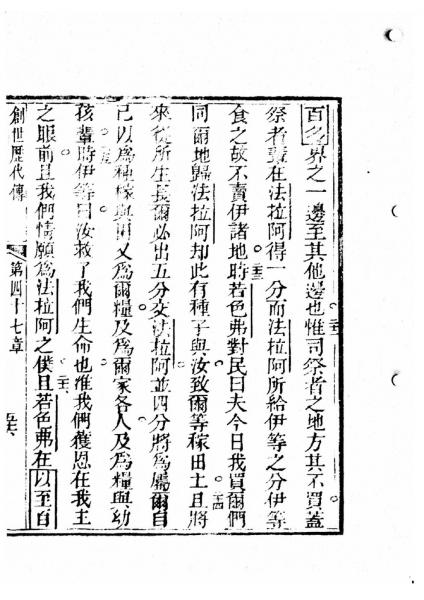 百多界之一邊至其他邊也惟司祭者之地方其不買蓋
二二
祭者責在法拉阿得一分而法拉阿所給伊等之分伊等
食之故不賣伊諸地時若色弗對民曰夫今日我買爾們
二三
同爾地歸法拉阿却此有種子與汝致爾等稼田土且將
二四
來從所生長爾必出五分交法拉阿並四分將為屬爾自
己以為種稼與田又為爾糧及為爾家各人及為糧與幼
孩輩時伊等曰汝救了我們生命也惟我們獲恩在我主
二五
之眼前且我們情願為法拉阿之僕且若色弗在以至百
二六
創世歷代傳
第四十七章
五六